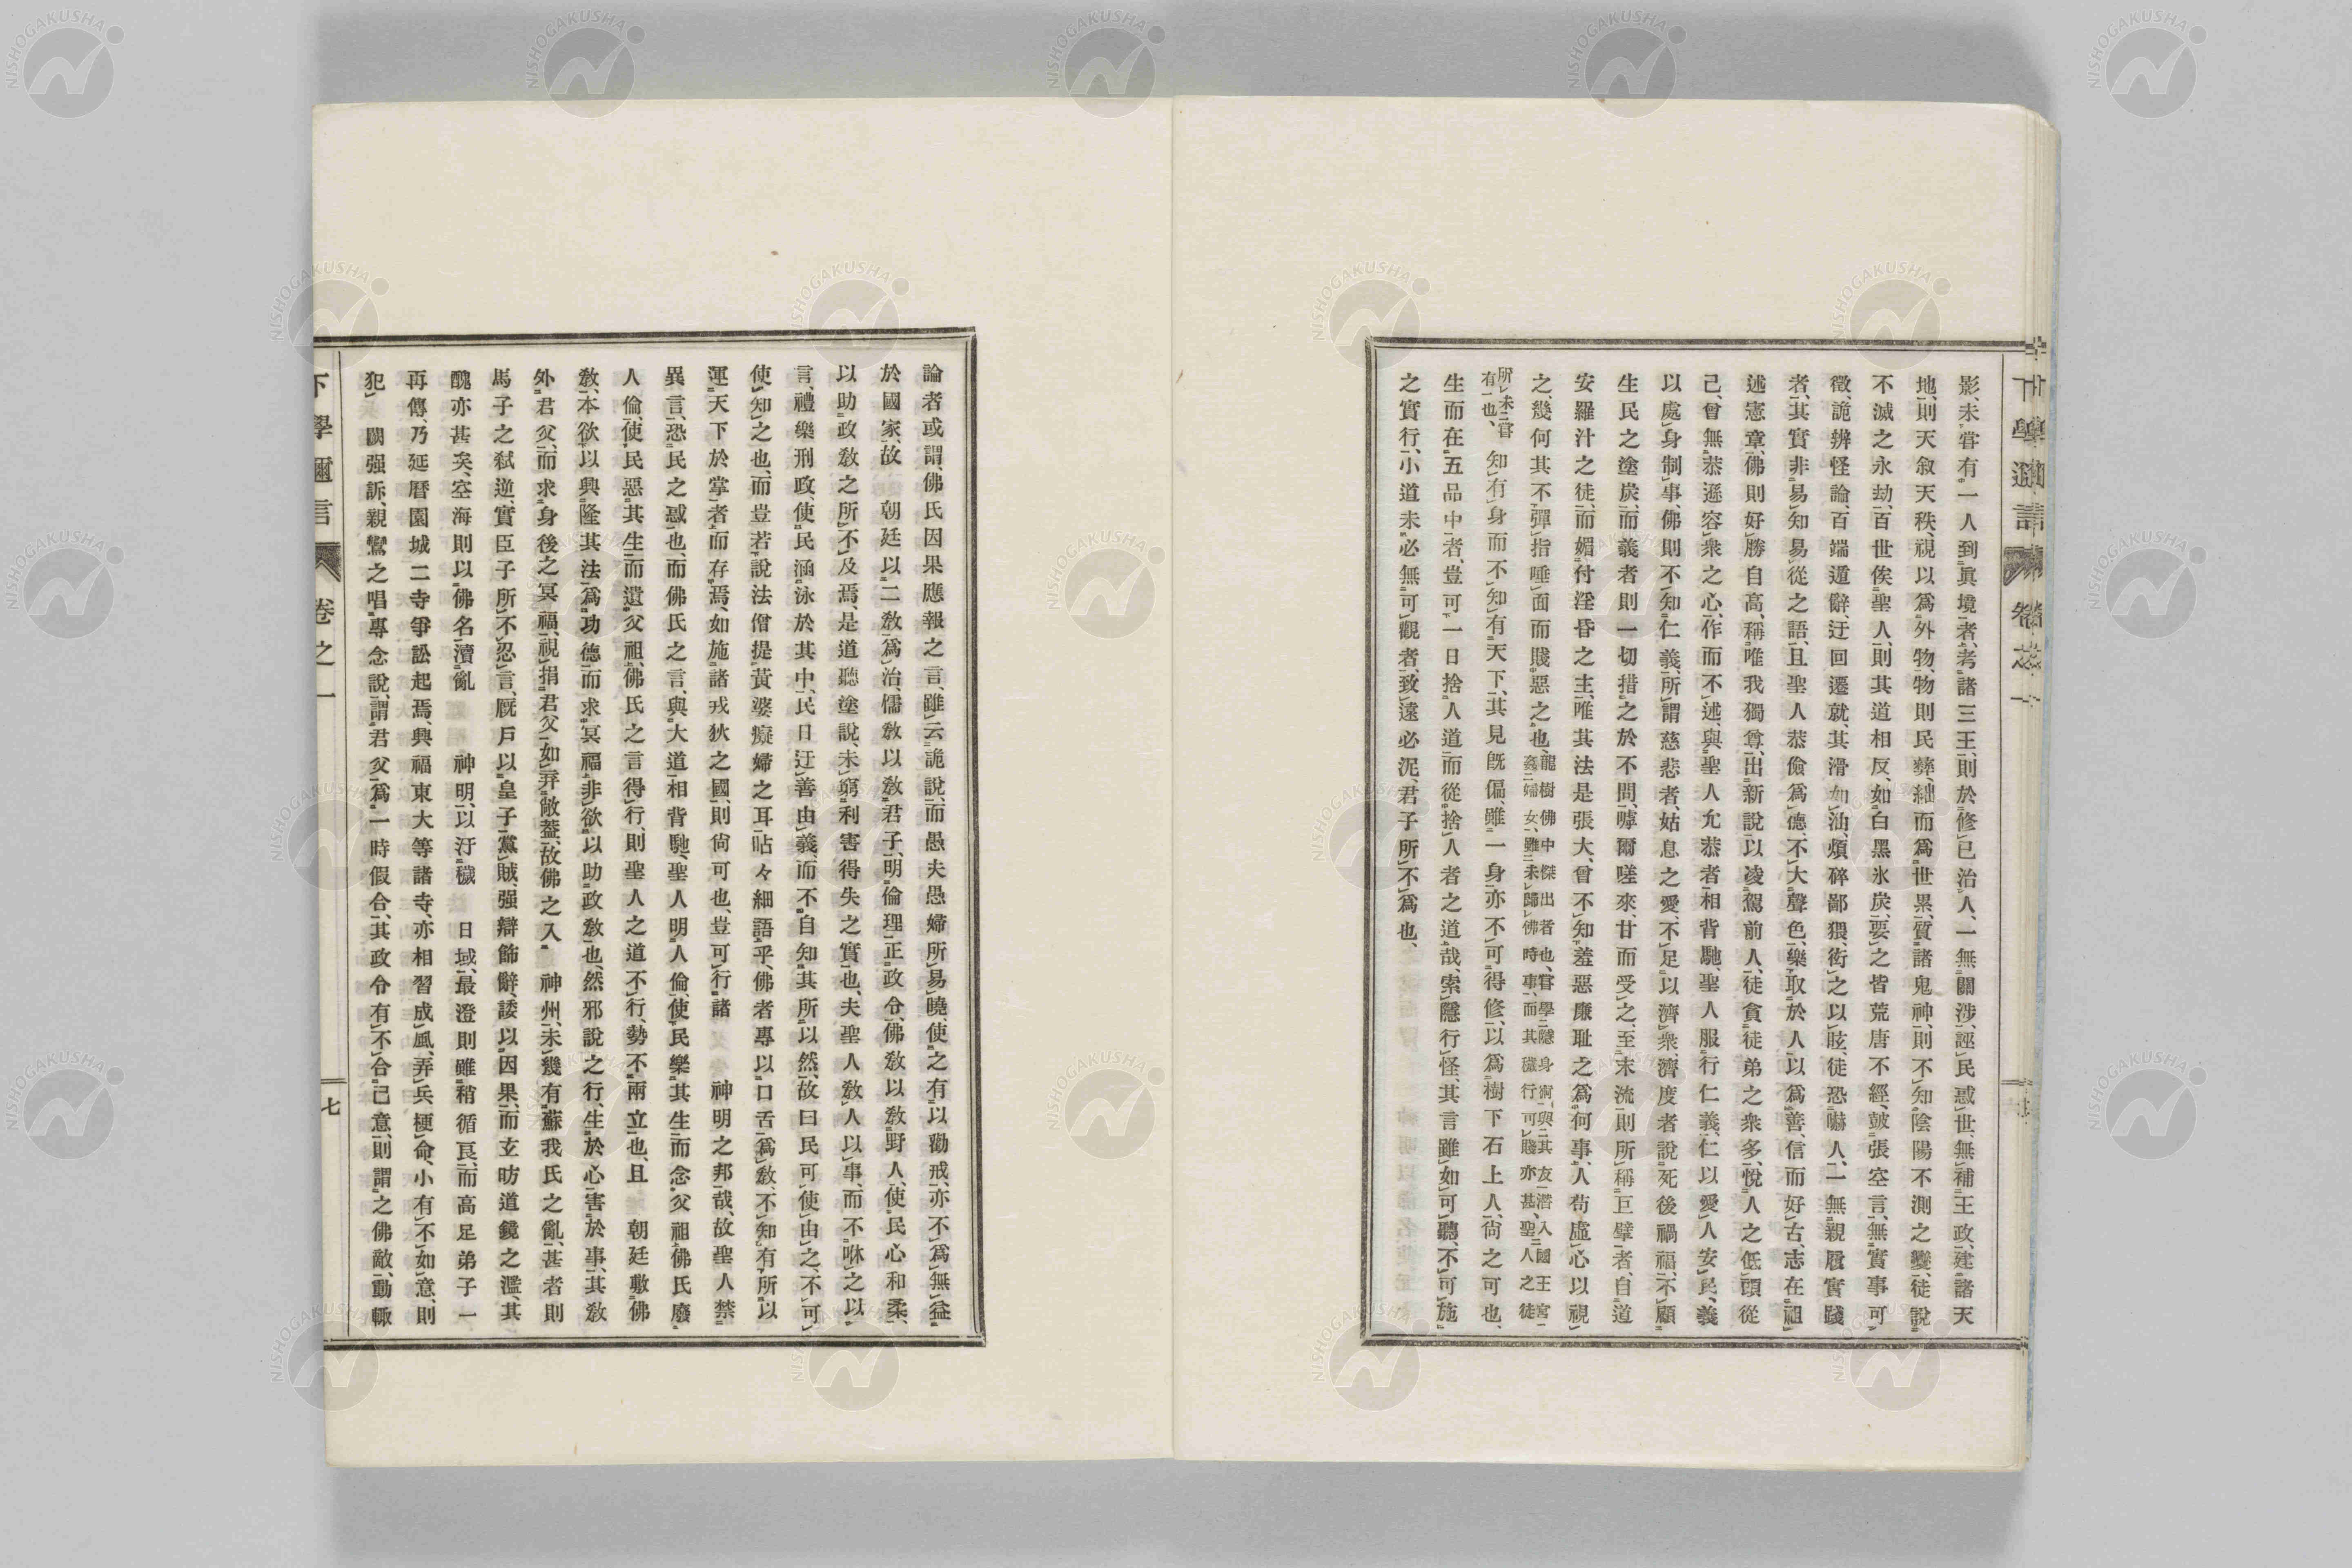 影、未嘗有一人到眞境者、考諸三王、則於修己治人、一無關涉、誣民惑世、無補王政、建諸天
地、則天敘天秩、視以爲外物、物則民彝、絀而爲世累、質諸鬼神、則不知陰陽不測之變、徒說
不滅之永劫、百世俟聖人、則其道相反、如白黑氷炭、要之皆荒唐不經、皷張空言、無實事可
徵、詭辨怪論、百端遁辭、迂回遷就、其滑如油、煩碎鄙猥、衒之以眩徒恐嚇人、一無親履實踐
者、其實非易知易從之語、且聖人恭儉爲德、不大聲色、樂取於人以爲善、信而好古、志在祖
述憲章、佛則好勝自高、稱唯我獨尊、出新說以凌駕前人、徒貪徒弟之衆多、悅人之低頭從
己、曾無恭遜容衆之心、作而不述、與聖人允恭者相背馳、聖人服行仁義、仁以愛人安民、義
以處身制事、佛則不知仁義、所謂慈悲者、姑息之愛、不足以濟衆、濟度者說死後禍福、不顧
生民之塗炭、而義者則一切措之於不問、嘑爾嗟來、甘而受之、至末流則所稱巨擘者、自道
安羅汁之徒、而媚付淫昏之主、唯其法是張大、曾不知羞惡廉耻之爲何事、人苟虛心以視
之、幾何其不彈指唾面而賤惡之也、
龍樹佛中傑出者也、嘗學隱身術、與其友潛入國王宮一
姦婦女、雖未歸佛時事、而其穢行可賤亦甚、聖人之徒
所未嘗
有也、
知有身而不知有天下、其見既偏、雖一身亦不可得修、以爲樹下石上人、尙之可也、
生而在五品中者、豈可一日捨人道而從捨人者之道哉、索隱行怪、其言雖如可聽、不可施
之實行、小道未必無可觀者、致遠必泥、君子所不爲也、
論者或謂、佛氏因果應報之言、雖云詭說、而愚夫愚婦所易曉、使之有以勸戒、亦不爲無益
於國家、故 朝廷以二敎爲治、儒敎以敎君子、明倫理正政令、佛敎以敎野人、使民心和柔、
以助政敎之所不及焉、是道聽塗說、未窮利害得失之實也、夫聖人敎人以事、而不咻之以
言、禮樂刑政、使民涵泳於其中、民日迂善由義、而不自知其所以然、故曰民可使由之、不可
使知之也、而豈若說法僧提黃婆癡婦之耳呫々細語乎、佛者專以口舌爲敎、不知有所以
運天下於掌者而存焉、如施諸戎狄之國、則尙可也、豈可行諸 神明之邦哉、故聖人禁
異言、恐民之惑也、而佛氏之言、與大道相背馳、聖人明人倫、使民樂其生而念父祖、佛氏廢
人倫、使民惡其生而遺父祖、佛氏之言得行、則聖人之道不行、勢不兩立也、且 朝廷敷佛
敎、本欲以興隆其法爲功德而求冥福、非欲以助政敎也、然邪說之行、生於心害於事、其敎
外君父、而求身後之冥福、視捐君父、如弃敝蓋、故佛之入 神州、未幾有蘇我氏之亂、甚者則
馬子之弑逆、實臣子所不忍言、厩戶以皇子黨賊、强辯飾辭、諉以因果、而玄昉道鏡之濫、其
醜亦甚矣、空海則以佛名瀆亂 神明、以汙穢 日域、最澄則雖稍循良、而高足弟子一
再傳、乃延曆園城二寺爭訟起焉、興福東大等諸寺、亦相習成風、弄兵梗命、小有不如意、則
犯闕强訴、親鸞之唱專念說、謂君父爲一時假合、其政令有不合己意、則謂之佛敵、動輙
下學邇言 卷之一 七